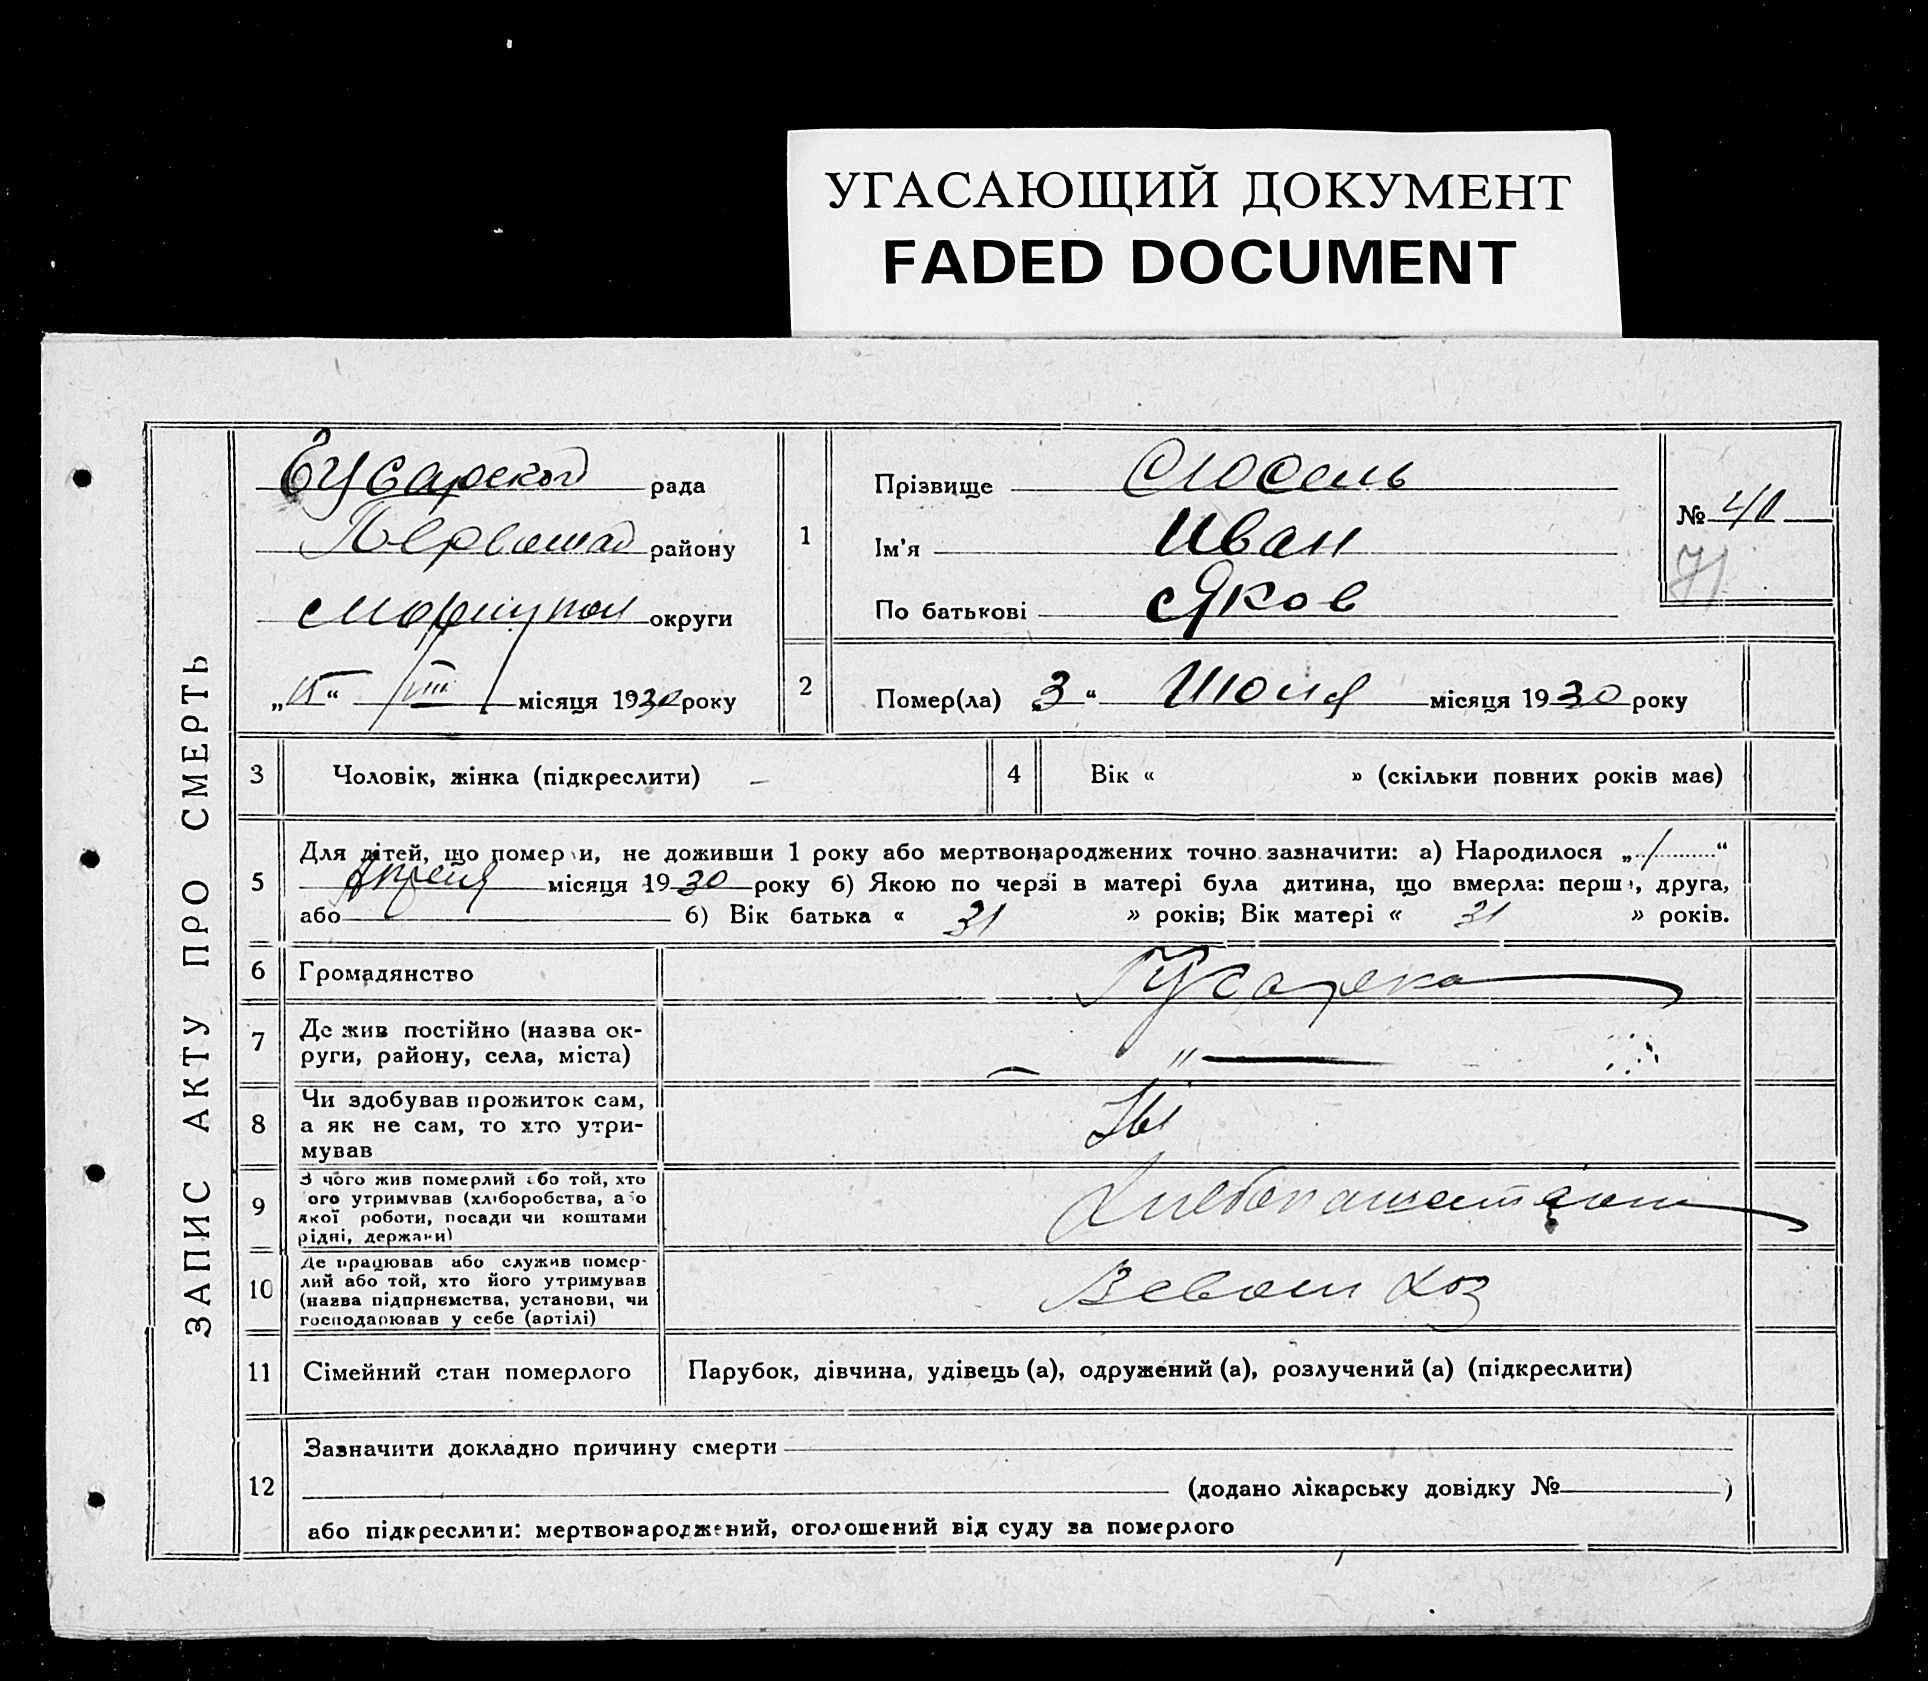 УГАСАЮЩИЙ ДОКУМЕНТ
FADED DOCUMENT
ЗАПИС АКТУ ПРО СМЕРТЬ
рада
району
округи
„ “ VIII місяця 1930 року
1
Прізвище
Ім'я Иван
По батькові Яков
№ 40
71
2
Помер(ла) 3 “ Июля місяця 1930 року
3 Чоловік, жінка (підкреслити) –
4 Вік « » (скільки повних років має)
5
Для дітей, що померли, не доживши 1 року або мертвонароджених точно зазначити: а) Народилося „ 1 “
Апреля місяця 1930 року б) Якою по черзі в матері була дитина, що вмерла: перша, друга,
або б) Вік батька « 31 » років; Вік матері « 31 » років.
6 Громадянство
7
Де жив постійно (назва ок-
руги, району, села, міста)
" —
8
Чи здобував прожиток сам,
а як не сам, то хто утри-
мував
9
З чого жив померлий або той, хто
ого утримував (хліборобства, або
якої роботи, посади чи коштами
рідні, держави)
10
Де працював або служив помер-
лий або той, хто його утримував
(назва підприємства, установи, чи
господарював у себе (артілі)
11 Сімейний стан померлого Парубок, дівчина, удівець (а), одружений (а), розлучений (а) (підкреслити)
12
Зазначити докладно причину смерти
(додано лікарську довідку № )
або підкреслити: мертвонароджений, оголошений від суду за померлого